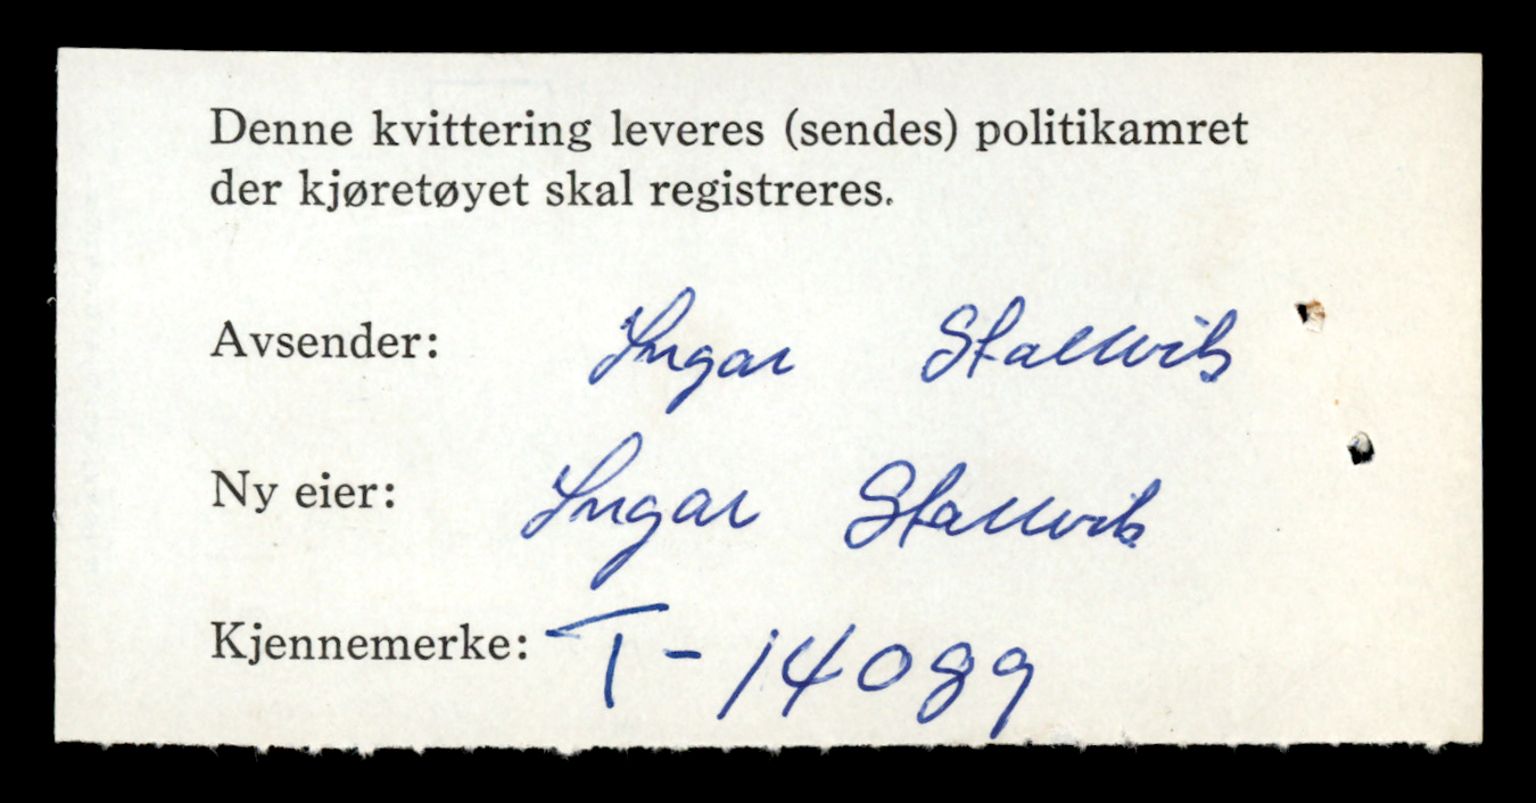 Denne kvittering leveres (sendes) politikamret
der kjøretøyet skal registreres.
Avsender: Ingar Stallvik
Ny eier: Ingar Stallvik
Kjennemerke: T-14089